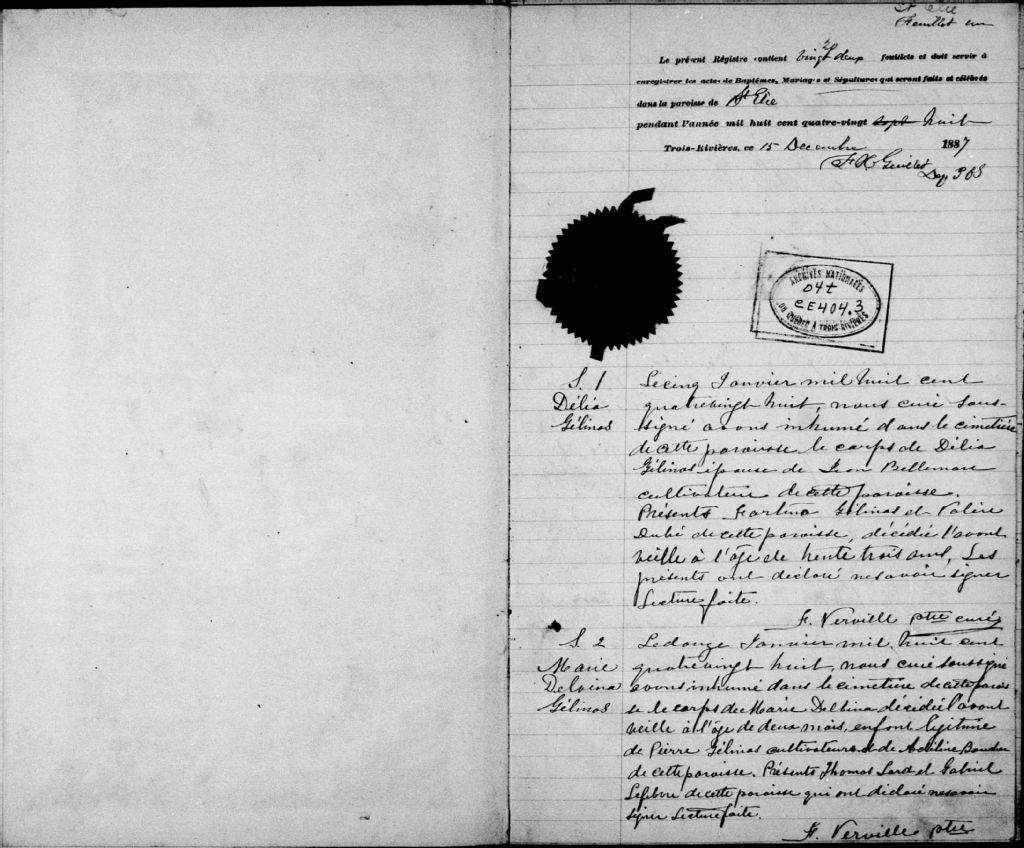 St Elie
Feuillet un
Le présent Régistre contient vingt deux feuillets et doit servir à
enregistrer les actes de Baptêmes, Mariages et Sépultures qui seront faits et célébrés
dans la paroisse de St Elie
pendant l'année mil huit cent quatre-vingt sept huit
Trois-Rivières, ce 15 Decembre 1887
F X Guillet
Dep P C S
ARCHIVES NATIONALES
04t
CE404.3
DU QUÉBEC À TROIS-RIVIÈRES
S. 1
Délia
Gélinas
Lecinq Janvier mil huit cent
quatrevingt huit, nous curé sous-
signé avons inhumé dans le cimetière
de cette paroisse le corps de Délia
Gélinas épouse de Léon Bellemare
cultivateur de cette paroisse.
Présents Gélinas et Valère
Dubé de cette paroisse, décédée l'avant
veille à l'âge de trente trois ans, Les
présents ont déclaré ne savoir signer
Lecture faite.
F. Verville ptre curé
S. 2
Marie
Delvina
Gélinas
Ledouze Janvier mil huit cent
quatrevingt huit, nous curé soussigné
avons inhumé dans le cimetière de cette parois
se le corps de Marie Delvina décédée l'avant
veille à l'âge de deux mois, enfant légitime
de Pierre Gélinas cultivateur et de Adéline
de cette paroisse. Présents Thomas et Gabriel
Lefebvre de cette paroisse qui ont déclaré ne savoir
signer Lecture faite.
F. Verville ptre